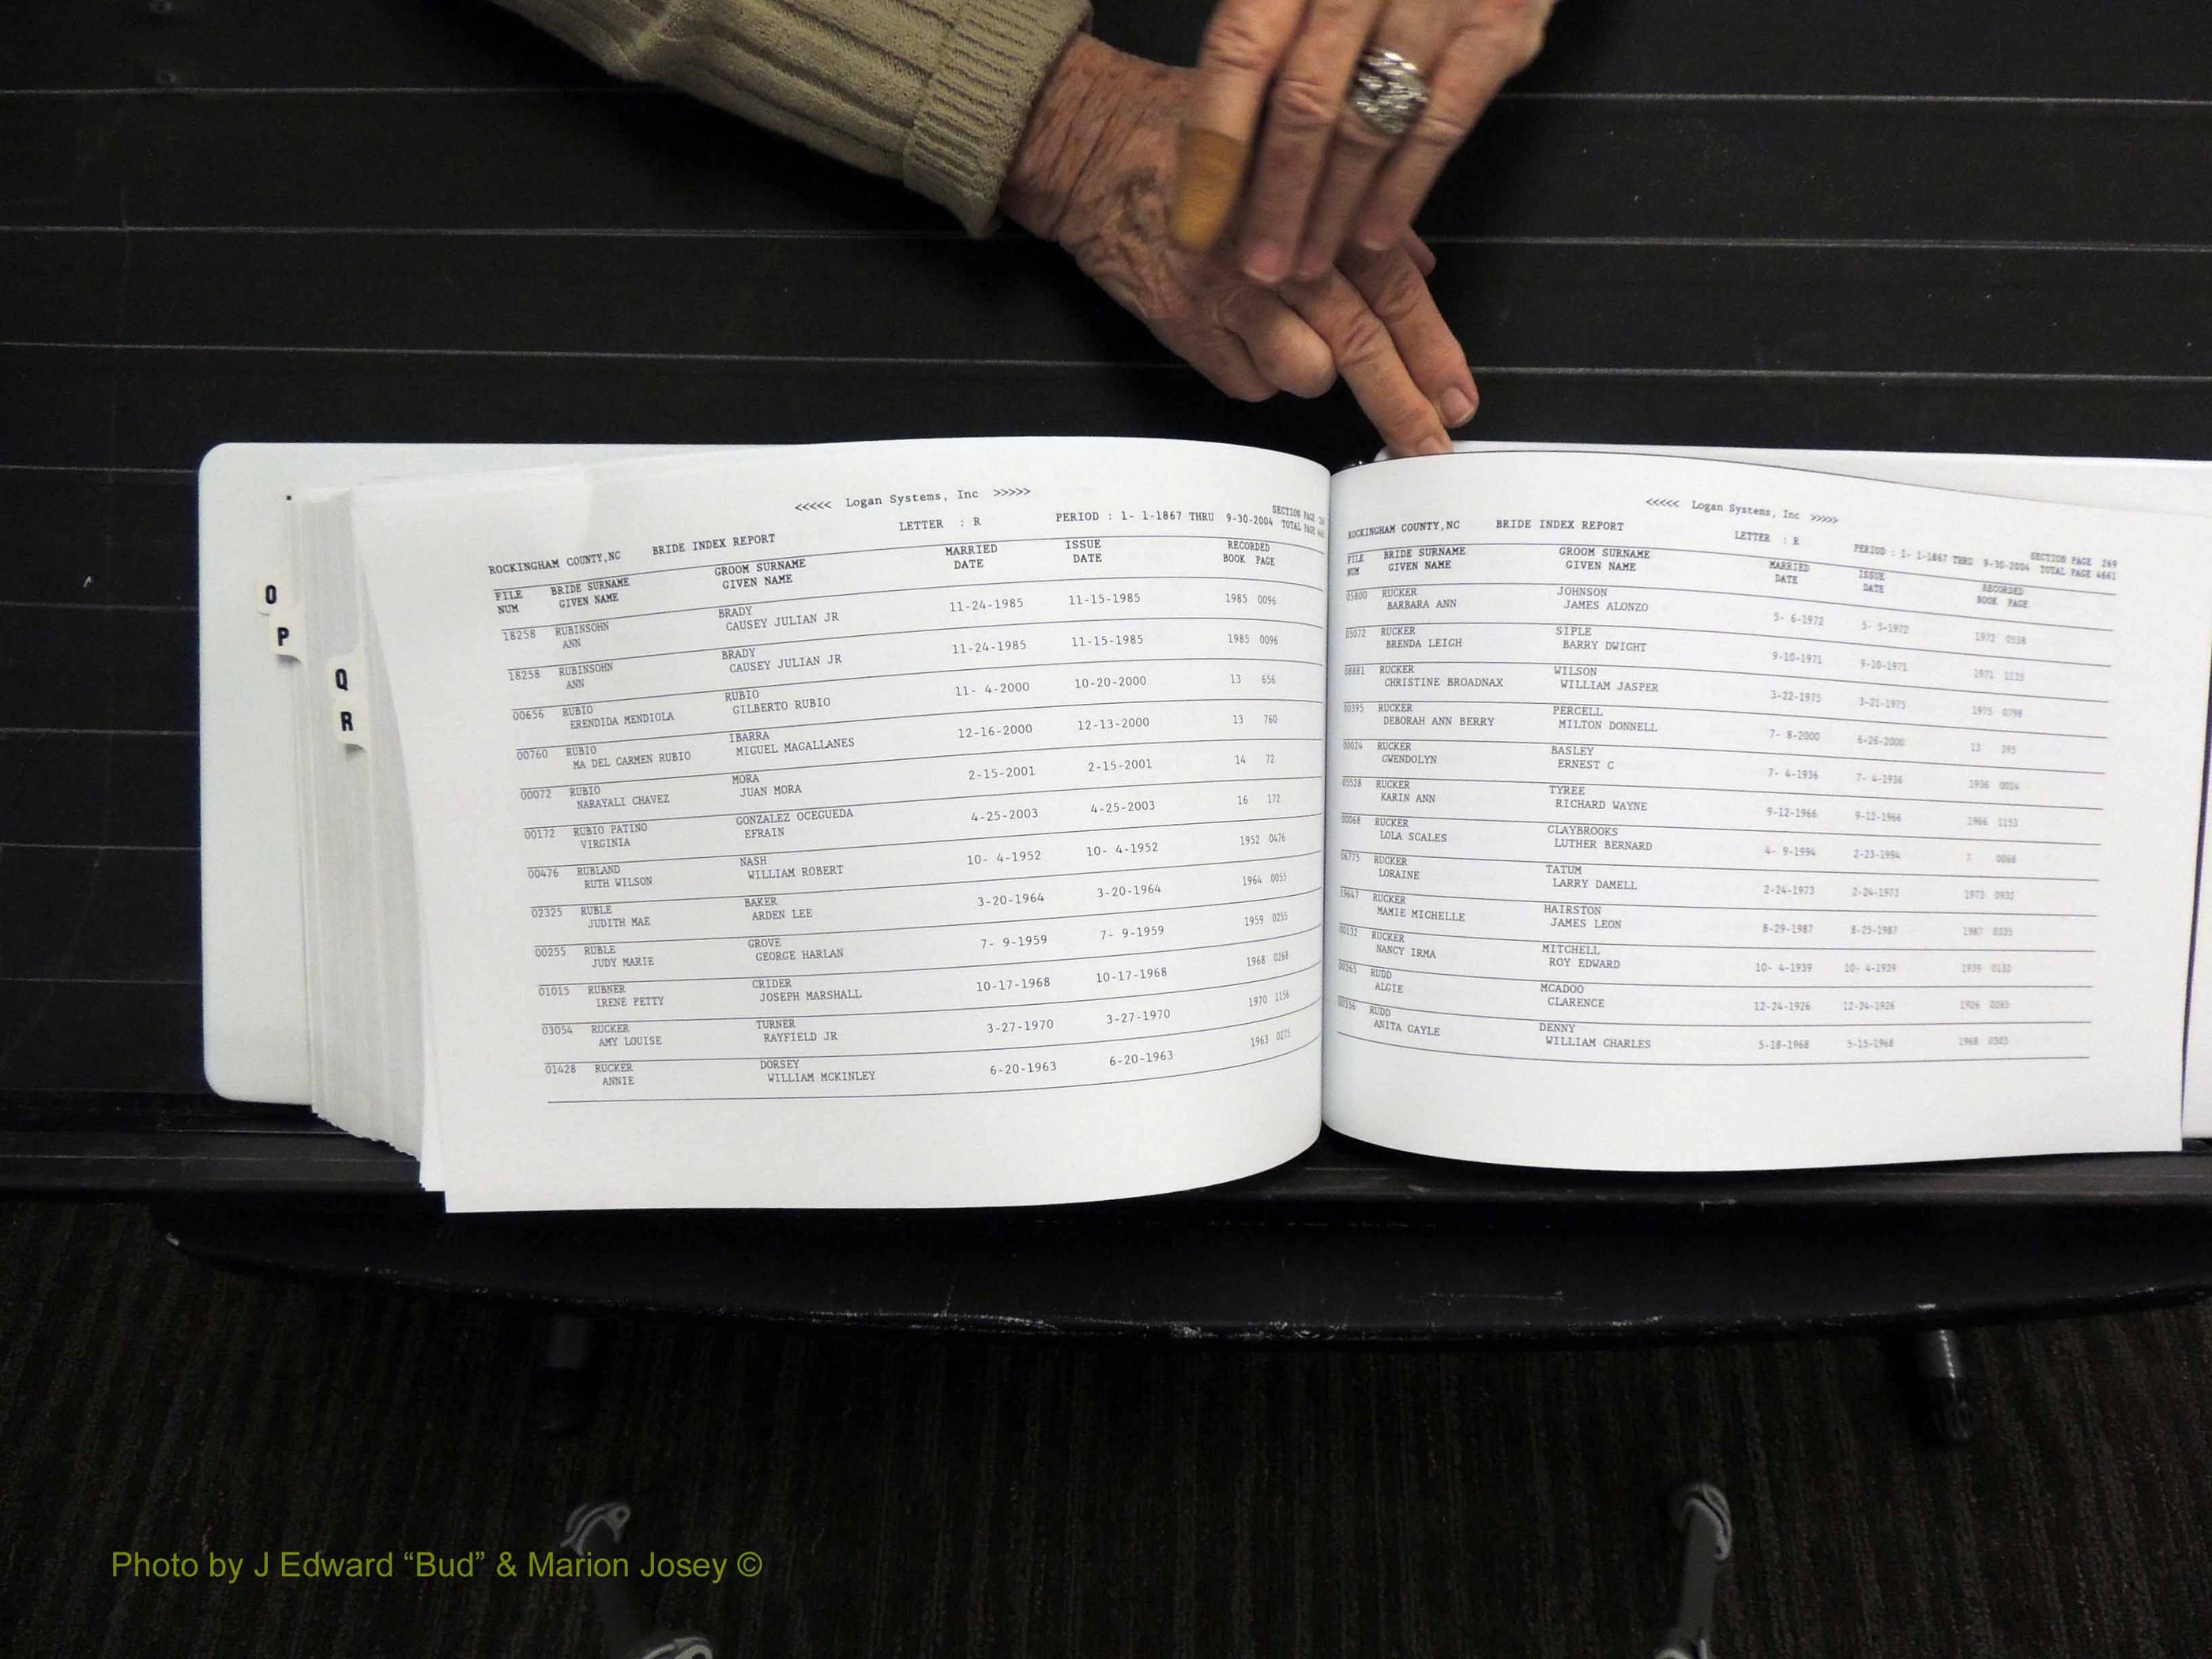 O
P
Q
R
<<<<< Logan Systems, Inc >>>>>
ROCKINGHAM COUNTY,NC BRIDE INDEX REPORT LETTER : R PERIOD : 1- 1-1867 THRU 9-30-2004 SECTION PAGE
TOTAL PAGE
FILE BRIDE SURNAME GROOM SURNAME MARRIED ISSUE RECORDED
NUM GIVEN NAME GIVEN NAME DATE DATE BOOK PAGE
18258 RUBINSOHN BRADY 11-24-1985 11-15-1985 1985 0096
ANN CAUSEY JULIAN JR
18258 RUBINSOHN BRADY 11-24-1985 11-15-1985 1985 0096
ANN CAUSEY JULIAN JR
00656 RUBIO RUBIO 11- 4-2000 10-20-2000 13 656
ERENDIDA MENDIOLA GILBERTO RUBIO
00760 RUBIO IBARRA 12-16-2000 12-13-2000 13 760
MA DEL CARMEN RUBIO MIGUEL MAGALLANES
00072 RUBIO MORA 2-15-2001 2-15-2001 14 72
NARAYALI CHAVEZ JUAN MORA
00172 RUBIO PATINO GONZALEZ OCEGUEDA 4-25-2003 4-25-2003 16 172
VIRGINIA EFRAIN
00476 RUBLAND NASH 10- 4-1952 10- 4-1952 1952 0476
RUTH WILSON WILLIAM ROBERT
02325 RUBLE BAKER 3-20-1964 3-20-1964 1964 0055
JUDITH MAE ARDEN LEE
00255 RUBLE GROVE 7- 9-1959 7- 9-1959 1959 0255
JUDY MARIE GEORGE HARLAN
01015 RUBNER CRIDER 10-17-1968 10-17-1968 1968 0268
IRENE PETTY JOSEPH MARSHALL
03054 RUCKER TURNER 3-27-1970 3-27-1970 1970 1156
AMY LOUISE RAYFIELD JR
01428 RUCKER DORSEY 6-20-1963 6-20-1963 1963 0275
ANNIE WILLIAM MCKINLEY
<<<<< Logan Systems, Inc >>>>>
ROCKINGHAM COUNTY,NC BRIDE INDEX REPORT LETTER : R PERIOD : 1- 1-1867 THRU 9-30-2004 SECTION PAGE 269
TOTAL PAGE 4661
FILE BRIDE SURNAME GROOM SURNAME MARRIED ISSUE RECORDED
NUM GIVEN NAME GIVEN NAME DATE DATE BOOK PAGE
05800 RUCKER JOHNSON 5- 6-1972 5- 5-1972 1972 0538
BARBARA ANN JAMES ALONZO
05072 RUCKER SIPLE 9-10-1971 9-10-1971 1971 1135
BRENDA LEIGH BARRY DWIGHT
08881 RUCKER WILSON 3-22-1975 3-21-1975 1975 0798
CHRISTINE BROADNAX WILLIAM JASPER
00395 RUCKER PERCELL 7- 8-2000 6-26-2000 13 395
DEBORAH ANN BERRY MILTON DONNELL
00024 RUCKER BASLEY 7- 4-1936 7- 4-1936 1936 0024
GWENDOLYN ERNEST C
05528 RUCKER TYREE 9-12-1966 9-12-1966 1966 1153
KARIN ANN RICHARD WAYNE
00068 RUCKER CLAYBROOKS 4- 9-1994 2-23-1994 0068
LOLA SCALES LUTHER BERNARD
06775 RUCKER TATUM 2-24-1973 2-24-1973 1973 0932
LORAINE LARRY DAMELL
19647 RUCKER HAIRSTON 8-29-1987 8-25-1987 1987 0335
MAMIE MICHELLE JAMES LEON
00132 RUCKER MITCHELL 10- 4-1939 10- 4-1939 1939 0132
NANCY IRMA ROY EDWARD
00265 RUDD MCADOO 12-24-1926 12-24-1926 1926 0265
ALGIE CLARENCE
00356 RUDD DENNY 5-18-1968 5-15-1968 1968 0303
ANITA GAYLE WILLIAM CHARLES
Photo by J Edward “Bud” & Marion Josey ©